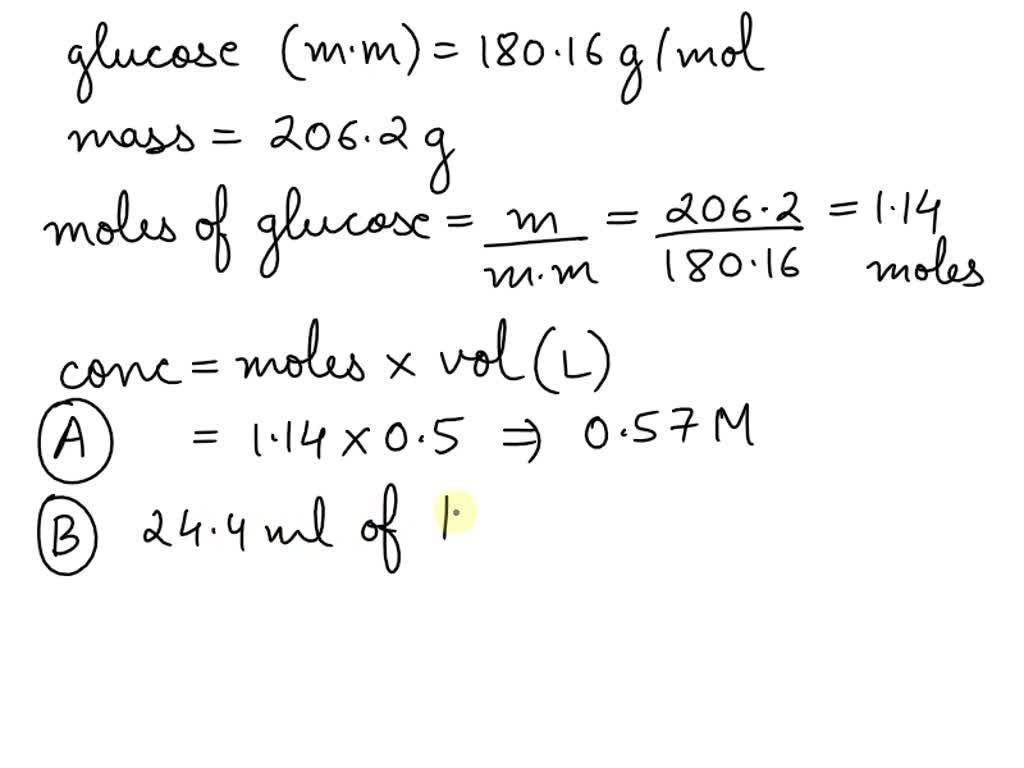 glucose (m.m) = 180.16 g/mol
mass = 206.2 g
moles of glucose = m/m.m = 206.2/180.16 = 1.14 moles
conc = moles × vol (L)
A = 1.14 × 0.5 ⇒ 0.57 M
B 24.4 ml of